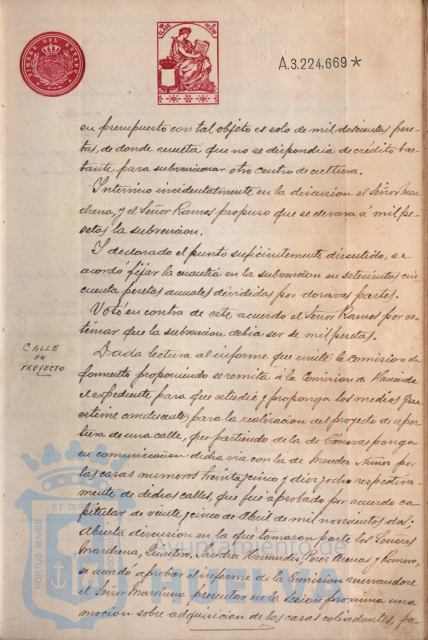 TIMBRE DEL ESTADO
A.3.224,669*
en presupuesto con tal objeto es solo de mil doscientas pese-
tas, de donde resulta que no se dispondria de crédito bas-
tante para subvencionar otro centro de cultura.
Intervino incidentalmente en la discusion el Señor Mar-
chena, y el Señor Ramos propuso que se elevara á mil pe-
setas la subvencion.
Y declarado el punto suficientemente discutido, se
acordó fijar la cuantia en la subvencion en setecientas cin
cuenta pesetas anuales divididas por dozavas partes.
Votó en contra de este acuerdo el Señor Ramos por es-
timar que la subvencion debia ser de mil pesetas.
CALLE
EN
PROYECTO
Dada lectura al informe que emite la Comision de
fomento proponiendo se remita á la Comision de Hacienda
el expediente para que estudie y proponga los medios que
estime conducentes para la realizacion del proyecto de aper-
tura de una calle, que partiendo de la de Cánovas ponga
en comunicacion dicha via con la de Mendez Nuñez por
las casas numeros treinta y cinco y diez y ocho respectiva
mente de dichas calles, que fué aprobado por acuerdo ca-
pitular de veinte y cinco de Abril de mil novecientos dos.
Abierta discusion en la que tomaron parte los Señores
Marchena, Quintero, Hernandez, Perez y Romero,
se acordó aprobar el informe de la Comision reservandose
el Señor Marchena presentar en la sesion próxima una
mocion sobre adquisicion de las casas colindantes, pa-
PORTUS MARIS ET TERRAE
Ayuntamiento de
HUELVA